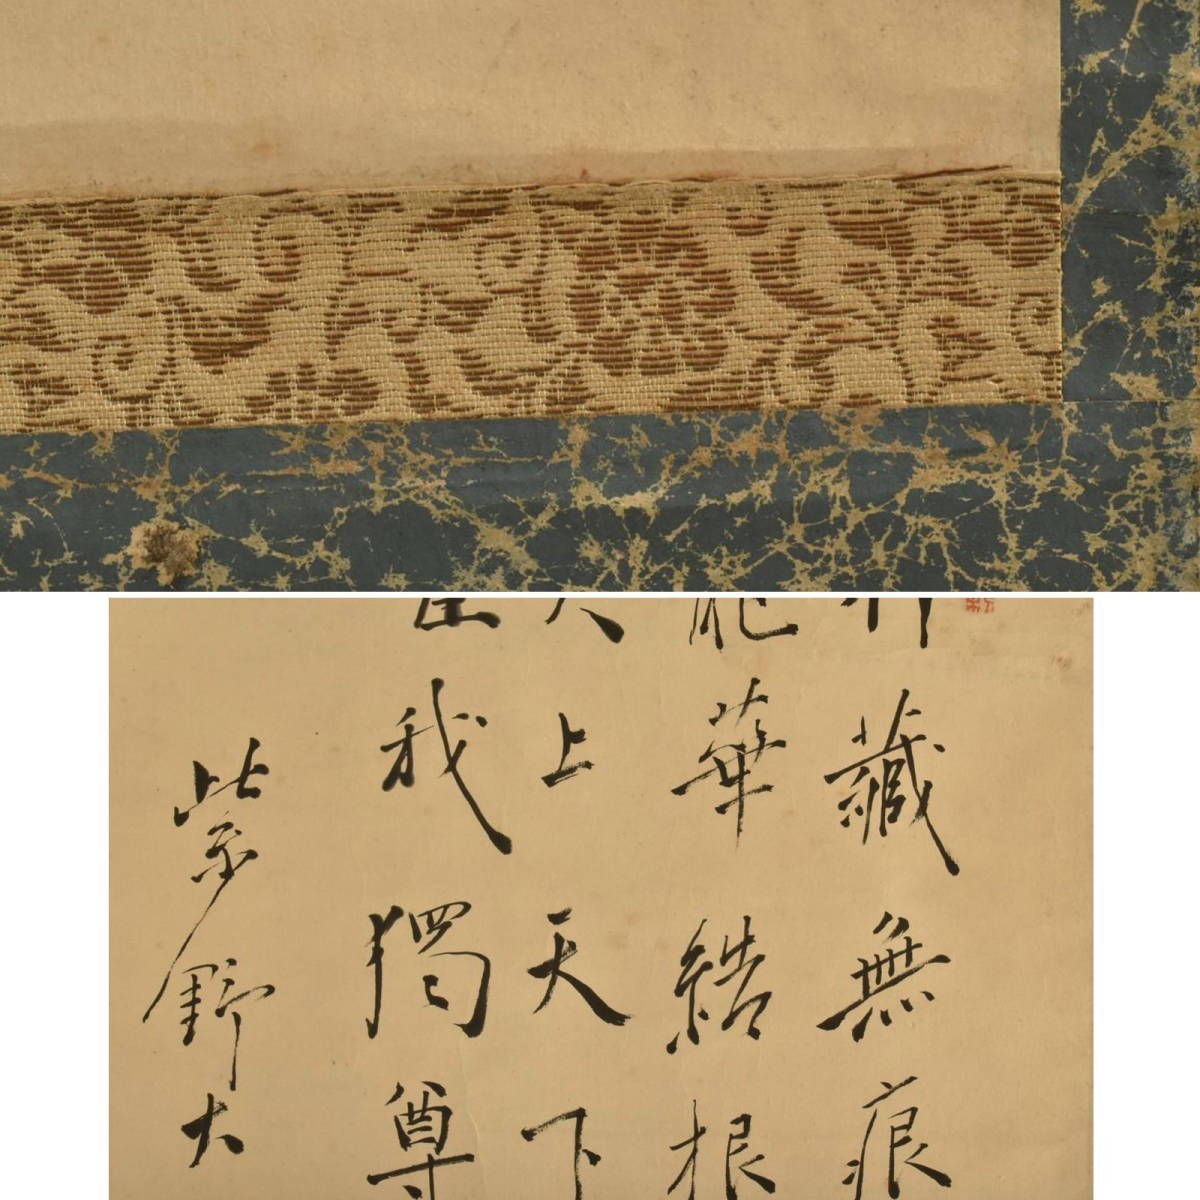 藏無痕
華結根
上天下
我獨尊
紫野大